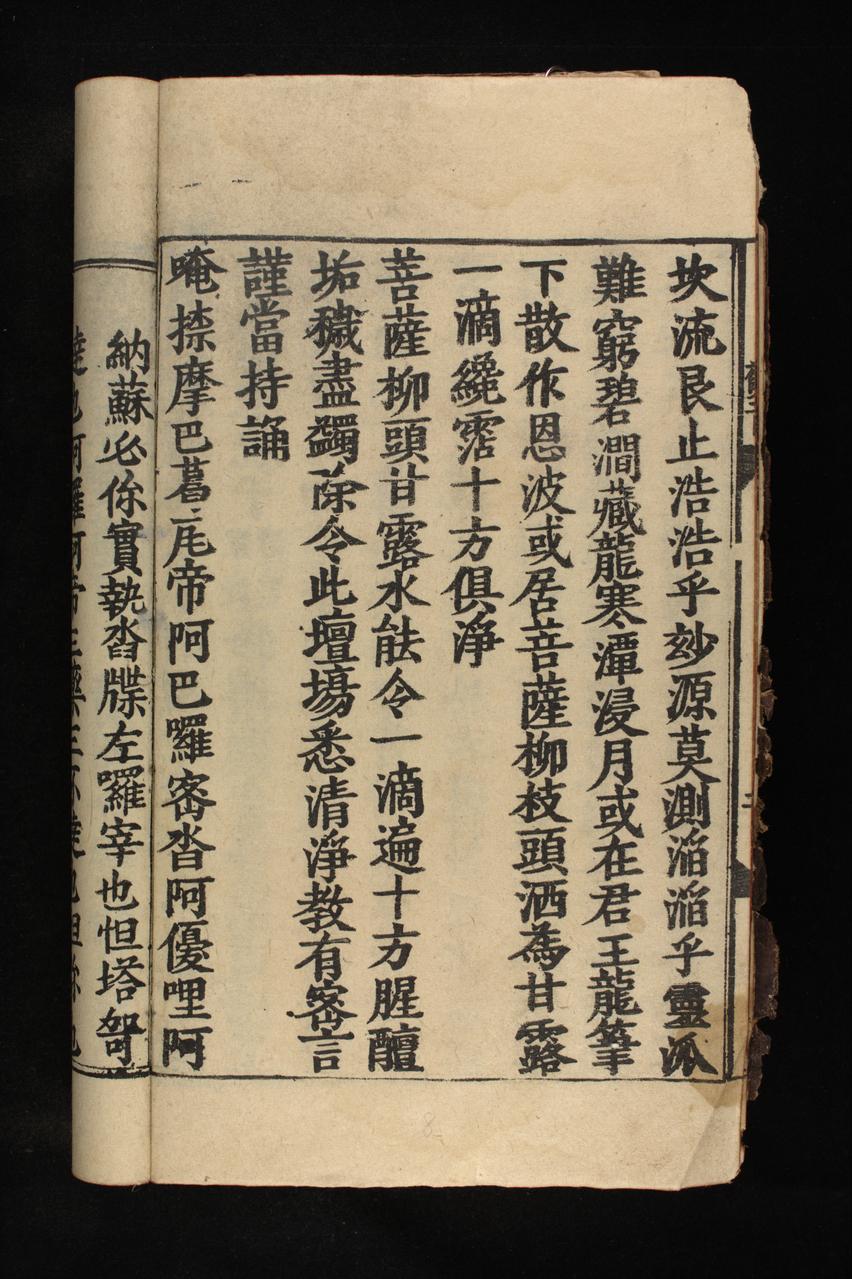 坎流艮止浩浩乎玅源莫測滔滔乎靈泒
難窮碧澗藏龍寒潭浸月或在君王龍筆
下散作恩波或居菩薩柳枝頭洒為甘露
一滴纔霑十方俱淨
菩薩柳頭甘露水能令一滴遍十方腥羶
垢穢盡蠲除令此壇場悉清淨教有密言
謹當持誦
唵捺摩巴葛㡯帝阿巴囉密沓阿優哩阿
納蘇必你實執沓牒左囉宰也怛塔哿